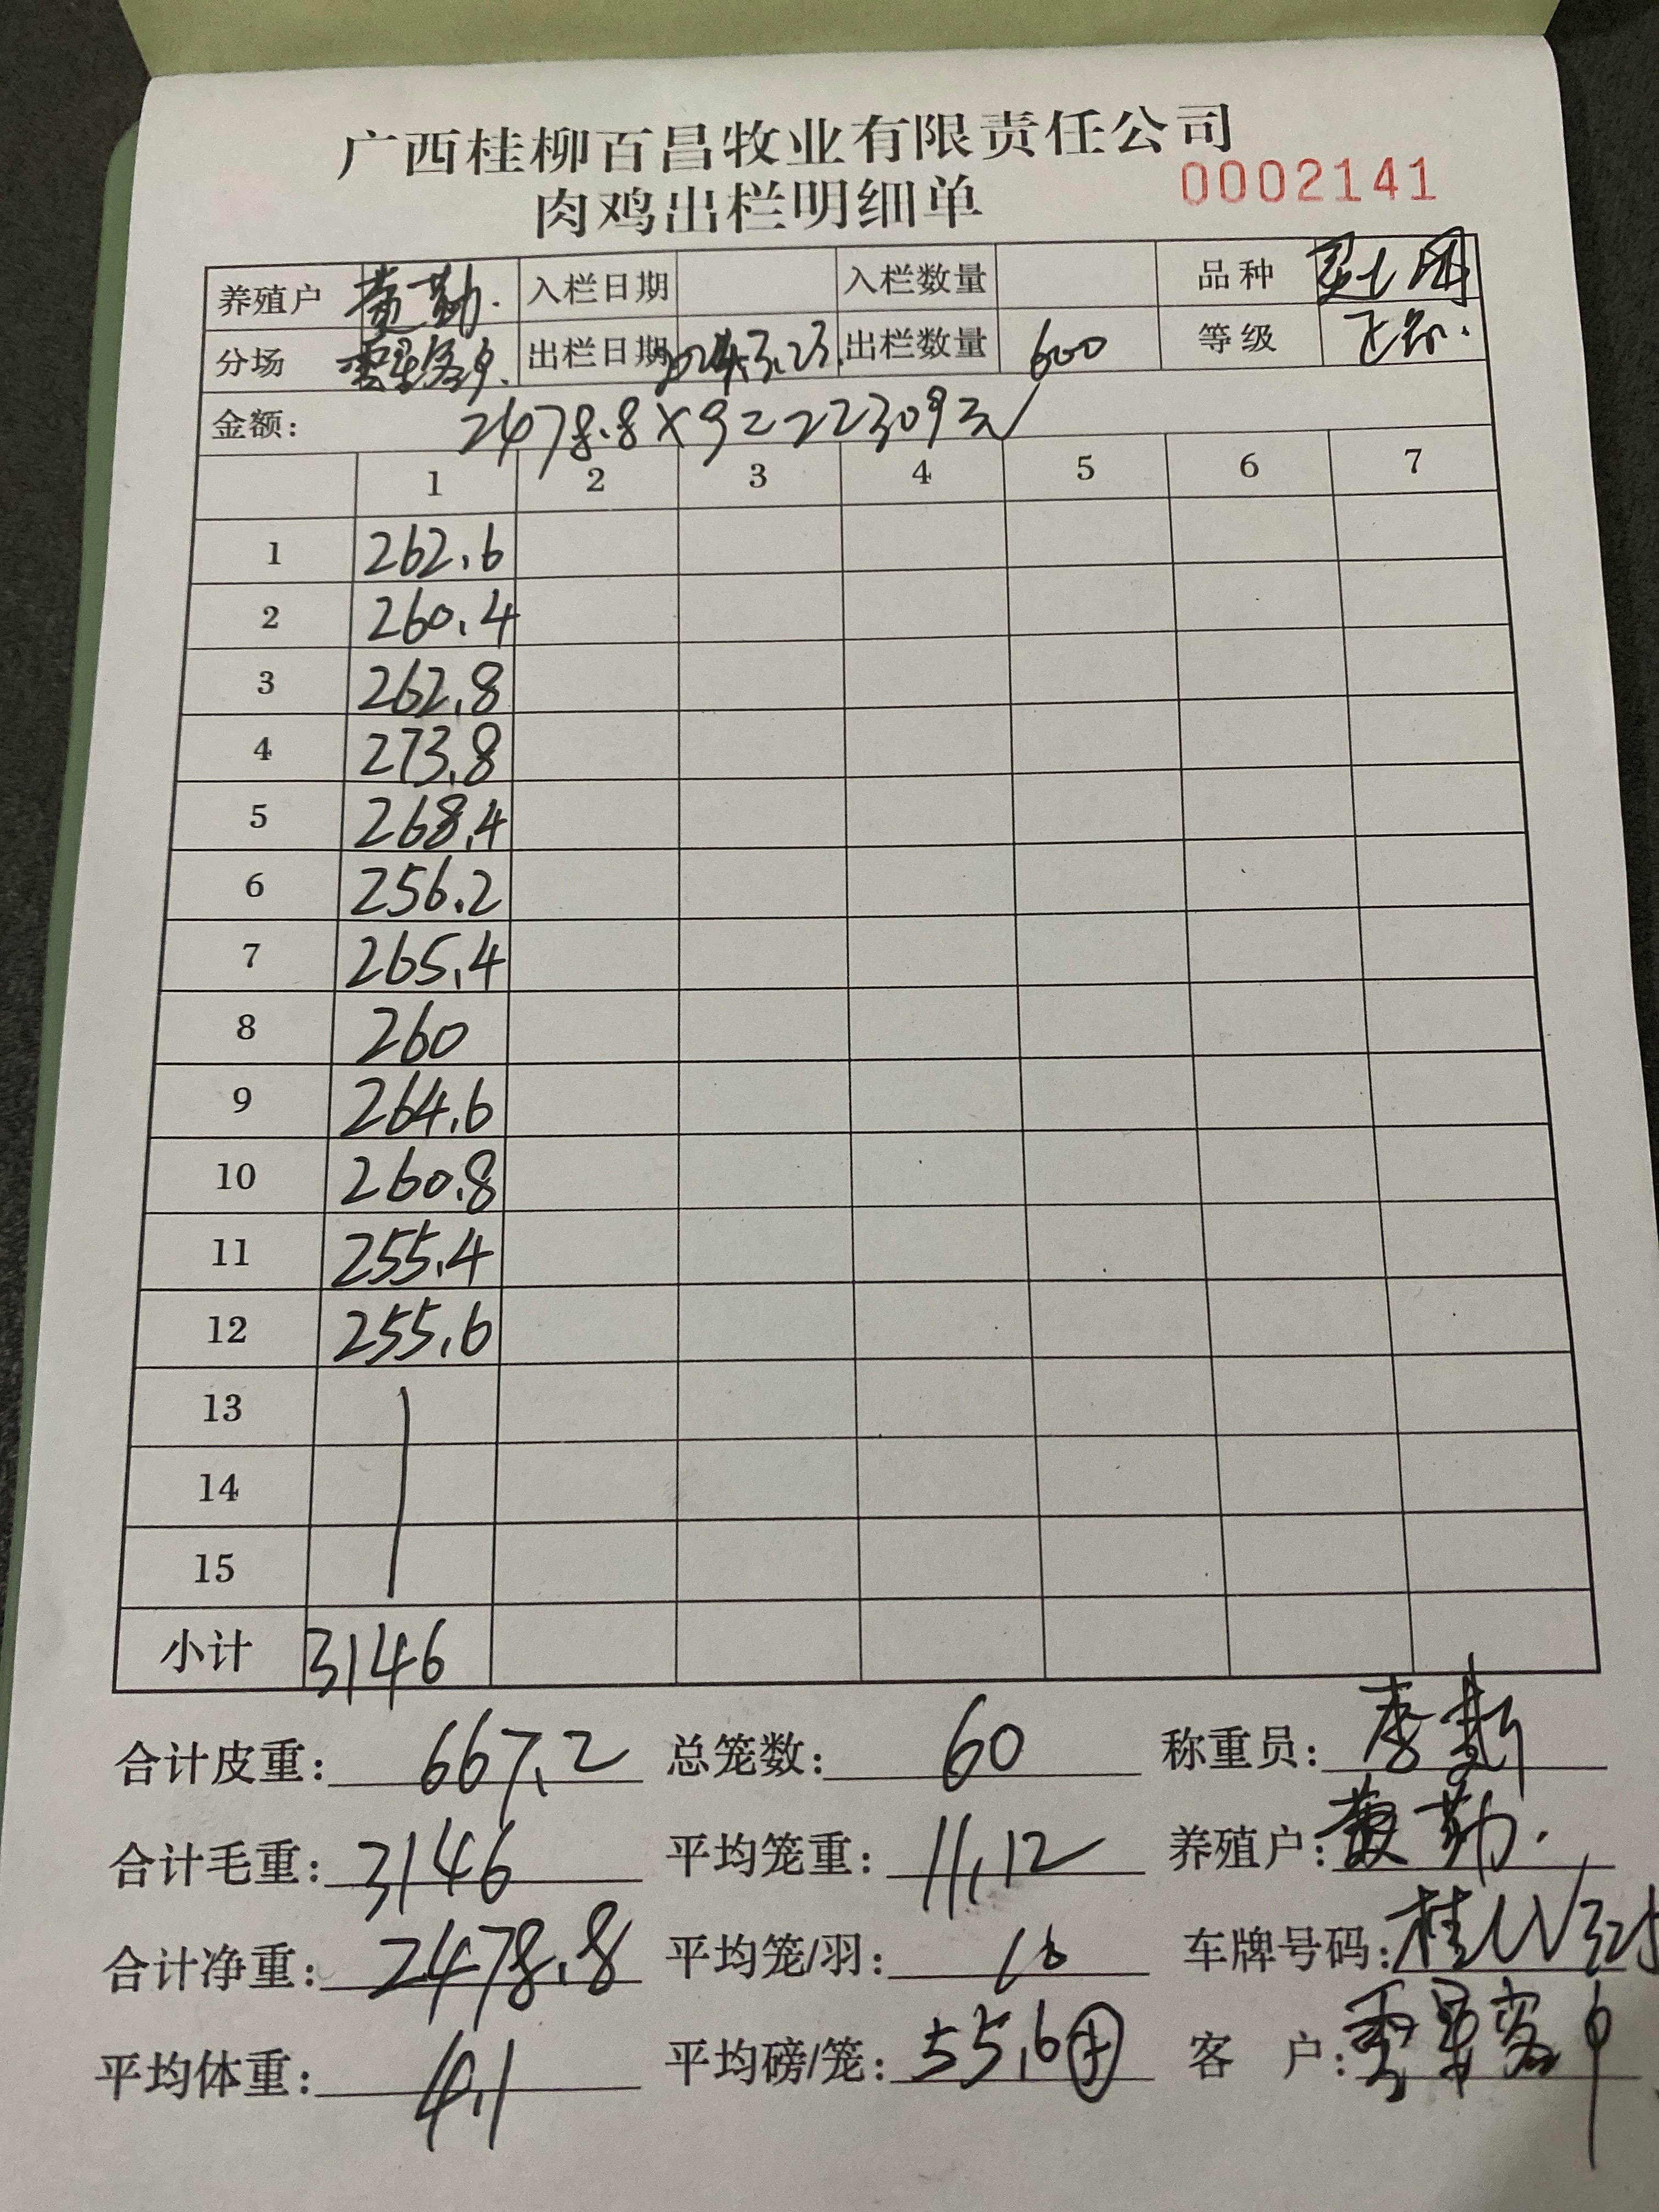 广西桂柳百昌牧业有限责任公司
肉鸡出栏明细单 0002141
养殖户 黄勤. 入栏日期 入栏数量 品种
分场 出栏日期 2024.3.23. 出栏数量 600 等级
金额: 2478.8×9=22309元
1 2 3 4 5 6 7
1 262.6
2 260.4
3 262.8
4 273.8
5 268.4
6 256.2
7 265.4
8 260
9 264.6
10 260.8
11 255.4
12 255.6
13
14
15
小计 3146
合计皮重: 667.2 总笼数: 60 称重员: 李
合计毛重: 3146 平均笼重: 11.12 养殖户: 黄勤.
合计净重: 2478.8 平均笼/羽: 10 车牌号码: 桂
平均体重: 4.1 平均磅/笼: 55.6 客 户: